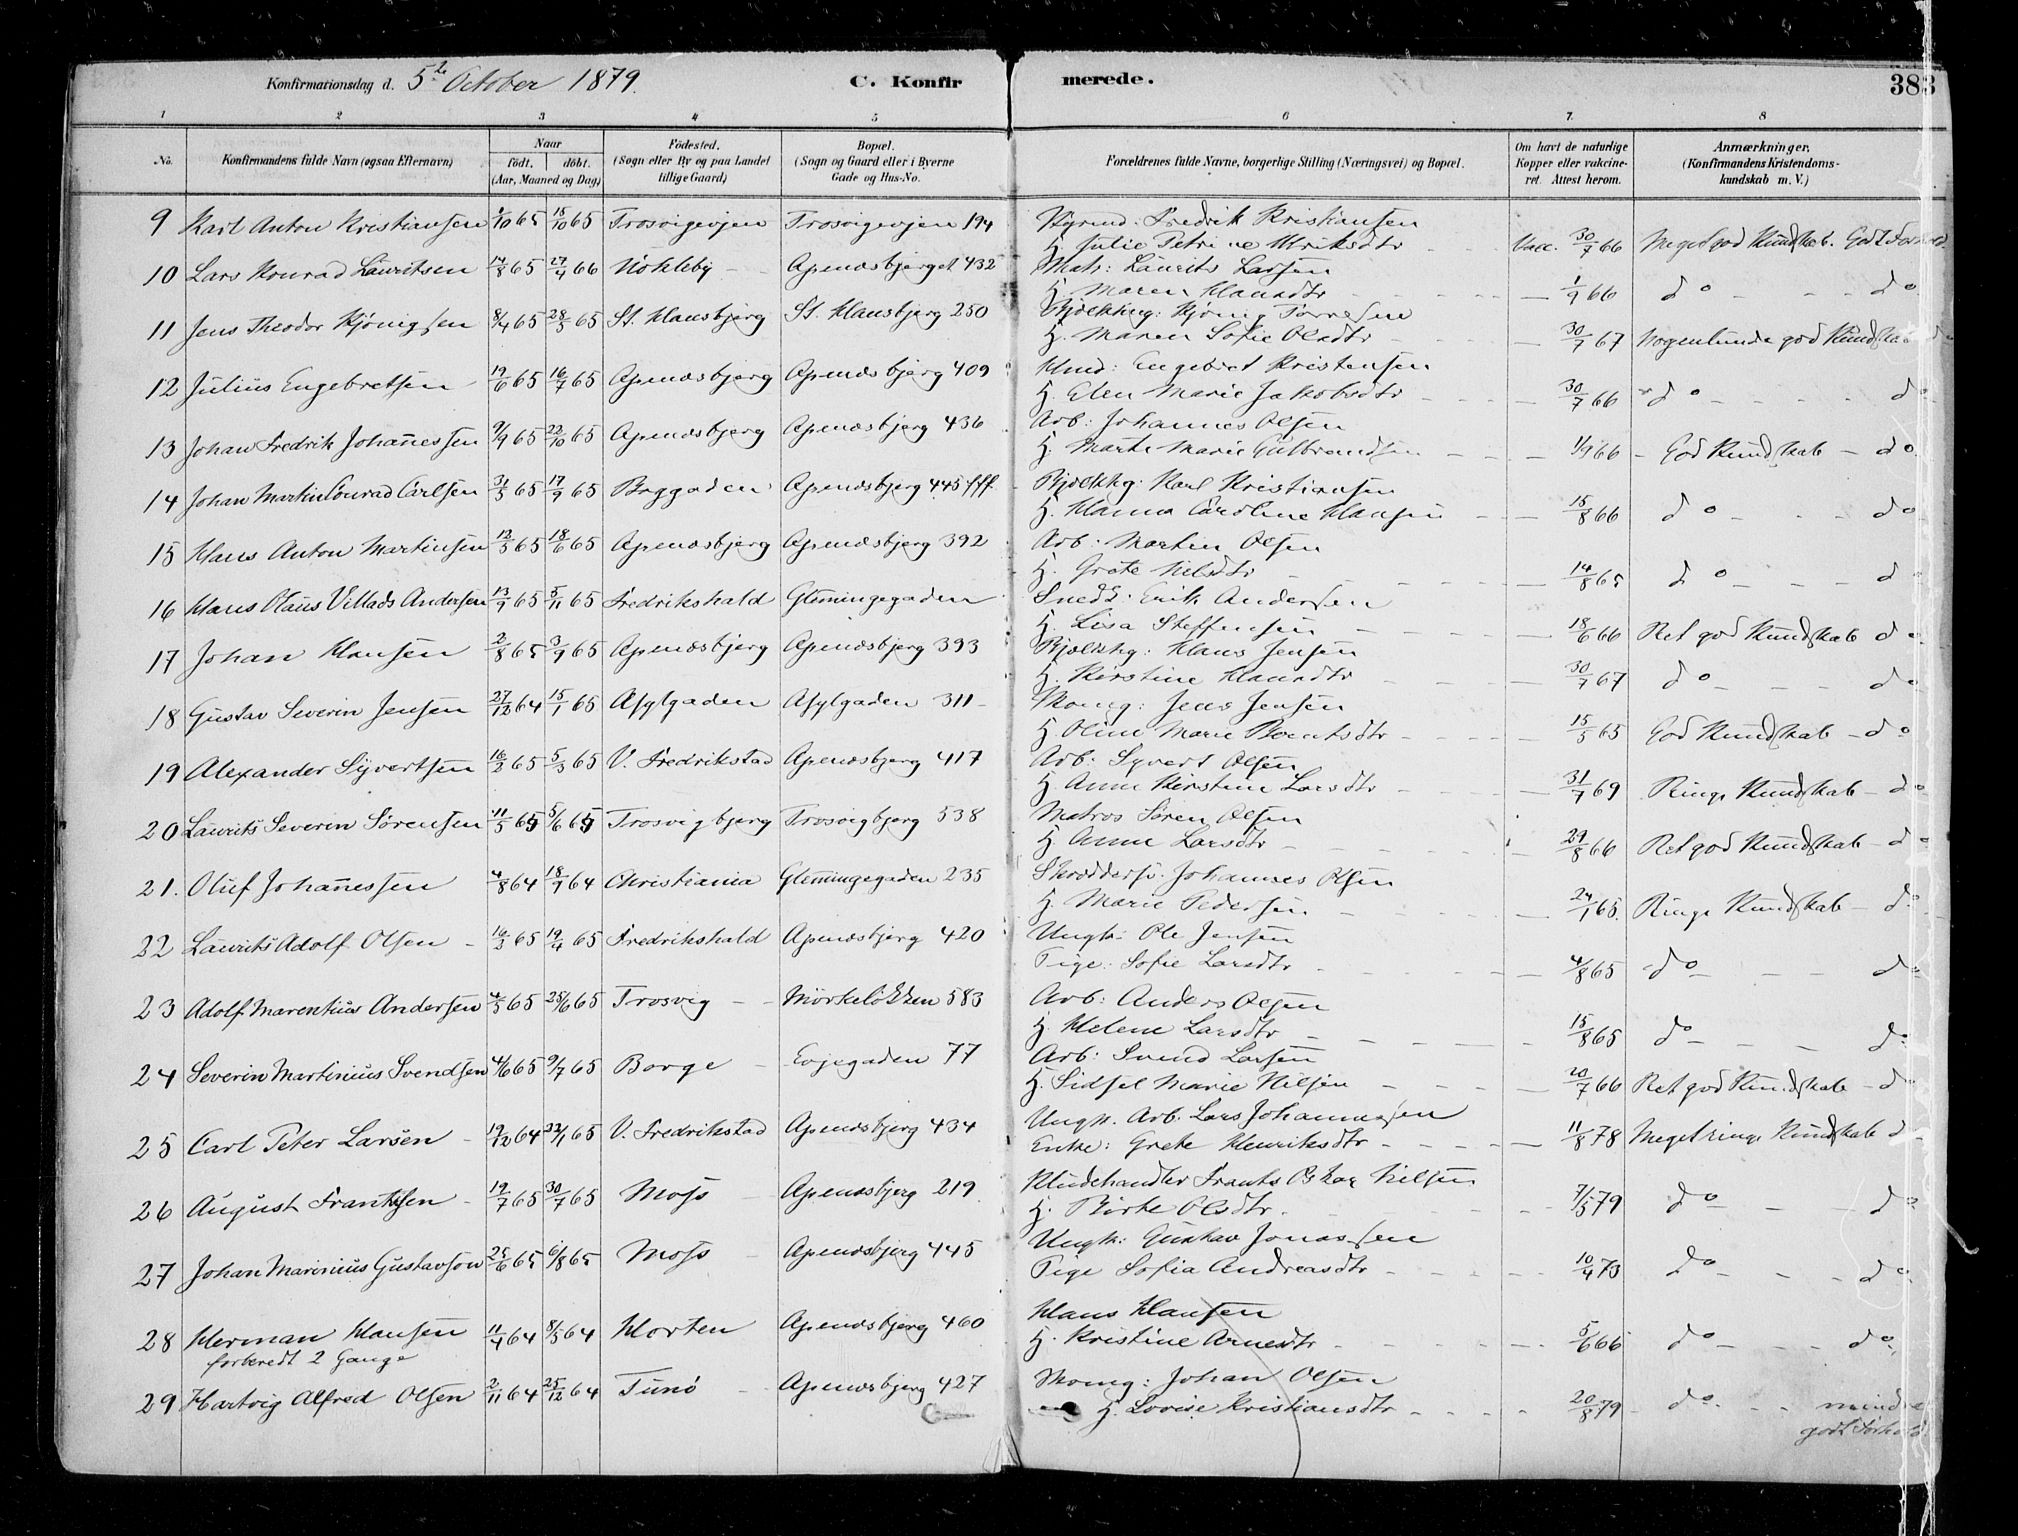 Konfirmationsdag d. 5te October 1879. C. Konfirmerede. 383
1 2 3 4 5 6 7. 8
No. Konfirmandens fulde Navn (ogsaa Efternavn) Naar födt. döbt. (Aar, Maaned og Dag) Födested. (Sogn eller By og paa Landet tillige Gaard) Bopæl. (Sogn og Gaard eller i Byerne Gade og Hus-No. Forældrenes fulde Navne, borgerlige Stilling (Næringsvei) og Bopæl. Om havt de naturlige Kopper eller vakcineret. Attest herom. Anmærkninger. (Konfirmandens Kristendomskundskab m. V.)
9 Karl Anton Kristiansen 1/10 65 15/10 65 Trosvigevjen Trosvigevjen 194 Fredrik Kristiansen
H. Julie Petrine Ulriksdtr Vacc. 30/7 66 Meget god Kundskab. Godt Forhold
10 Lars Konrad Lauritsen 14/8 65 27/4 66 Nökleby Apenæsbjerget 432 Matr: Laurits Larsen
H. Maren Hansdtr 1/9 66 do do
11 Jens Theodor Hjönigsen 8/4 65 28/5 65 St. Hansbjerg St. Hansbjerg 250
H. Maren Sofie Olsdtr 30/7 67 Nogenlunde god Kundskab do
12 Julius Engebretsen 19/6 65 16/7 65 Apenæsbjerg Apenæsbjerg 409 Engebret Kristensen
H. Elen Marie Jakobsdtr 30/7 66 do do
13 Johan Fredrik Johannessen 9/9 65 22/10 65 Apenæsbjerg Apenæsbjerg 436 Arb: Johannes Olsen
H. Marte Marie Gulbrandsen 1/9 66 God Kundskab do
14 Johan Martin Conrad Carlsen 31/5 65 17/9 65 Byggaden Apenæsbjerg 445 fff. Bjælkhg: Karl Kristiansen
H. Hanna Caroline Hansen 15/8 66 do do
15 Hans Anton Martinsen 12/5 65 18/6 65 Apenæsbjerg Apenæsbjerg 392 Arb. Martin Olsen
H. Grete Nilsdtr 14/8 65 do do
16 Hans Olaus Villads Andersen 13/9 65 5/11 65 Fredrikshald Glemingegaden Snedk. Erik Andersen
H. Lisa Steffensen 18/6 66 Ret god Kundskab do
17 Johan Hansen 2/8 65 3/9 65 Apenæsbjerg Apenæsbjerg 393 Bjælkhg: Hans Jensen
H. Kirstine Hansdtr 30/7 67 do do
18 Gustav Severin Jensen 27/12 64 15/1 65 Asylgaden Asylgaden 311 Jens Jensen
H. Oline Marie Berntsdtr 15/5 65 God Kundskab do
19 Alexander Syvertsen 16/2 65 5/3 65 V. Fredrikstad Apenæsbjerg 417 Arb: Syvert Olsen
H. Anne Kirstine Larsdtr 31/7 69 Ringe Kundskab do
20 Laurits Severin Sörensen 11/5 65 5/6 65 Trosvigbjerg Trosvigbjerg 538 Matros Sören Olsen
H. Anne Larsdtr 29/8 66 Ret god Kundskab do
21. Oluf Johannessen 4/8 64 18/9 64 Christiania Glemingegaden 235 Skræddersv. Johannes Olsen
H. Marie Pedersen 24/1 65. Ringe Kundskab do
22 Laurits Adolf Olsen 16/3 65 19/4 65 Fredrikshald Apenæsbjerg 420 Ungk: Ole Jensen
Pige: Sofie Larsdtr 4/8 65 do do
23 Adolf Marentius Andersen 4/5 65 25/6 65 Trosvig Mörkelökken 583 Arb: Anders Olsen
H. Helene Larsdtr 15/8 65 do do
24 Severin Martinius Svendsen 4/6 65 9/7 65 Borge Evjegaden 77 Arb: Svend Larsen
H. Sidsel Marie Nilsen 20/7 66 Ret god Kundskab do
25 Carl Peter Larsen 19/12 64 22/1 65 V. Fredrikstad Apenæsbjerg 434 Ungk. Arb. Lars Johannessen
Enke: Grete Henriksdtr 11/8 78 Meget ringe Kundskab do
26 August Frantsen 19/7 65 30/7 65 Moss Apenæsbjerg 219 Kludehandler Frants Oskar Nilsen
H. Birte Olsdtr. 7/5 79 do do
27 Johan Marinius Gustavson 25/6 65 6/8 65 Moss Apenæsbjerg 445 Ungk: Gustav Jonassen
Pige Sofia Andreasdtr 10/4 73 do do
28 Herman Hansen 11/4 64 8/5 64 Horten Apenæsbjerg 460 Hans Hansen
forberedt 2 Gange H. Kristine Arnesdtr 5/6 66 do do
29 Hartvig Alfred Olsen 2/11 64 25/12 64 Tunö Apenæsbjerg 427 Johan Olsen
H. Lovise Kristiansdtr 20/8 79 do mindre
godt Forhold